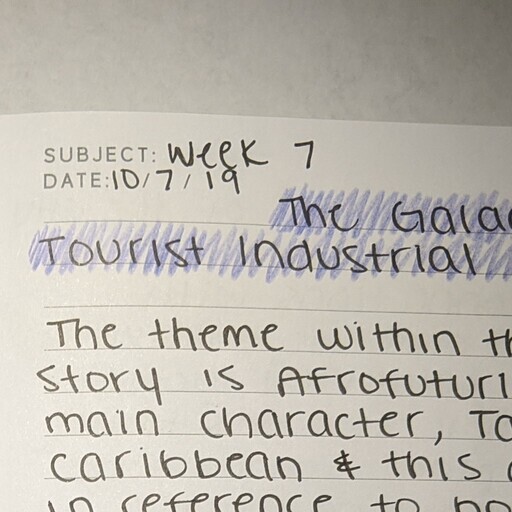 SUBJECT: Week 7
DATE: 10/7/19
The Gala
Tourist Industrial
The theme within th
story is Afrofuturi
main character, To
Caribbean & this
in reference to